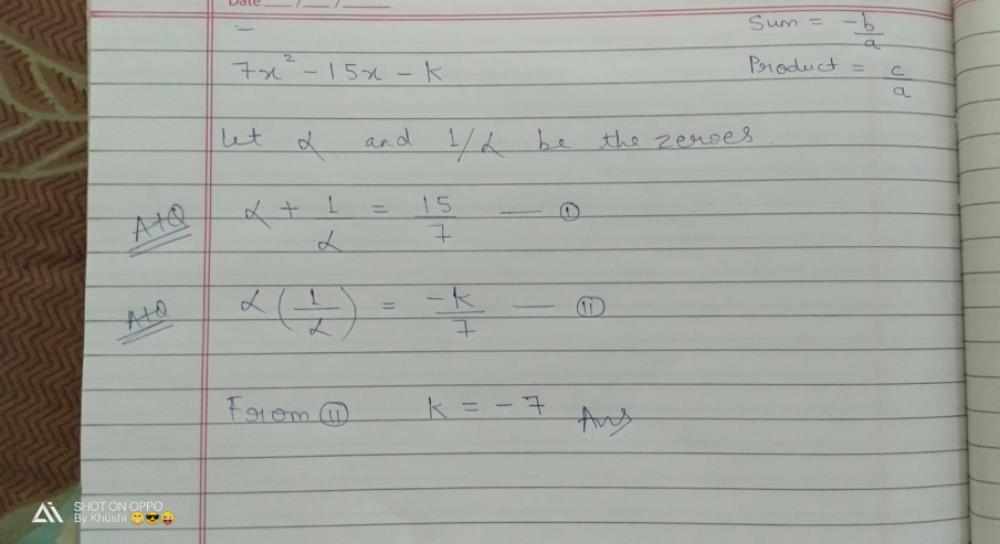 Date __/__/____
Sum = -b/a
7x² - 15x - k
Product = c/a
let α and 1/α be the zeroes.
A+Q α + 1/α = 15/7 — Ⓘ
A+Q α(1/α) = -k/7 — Ⓘⓘ
From Ⓘⓘ k = -7 Ans
SHOT ON OPPO
By Khushi 😁😎😜